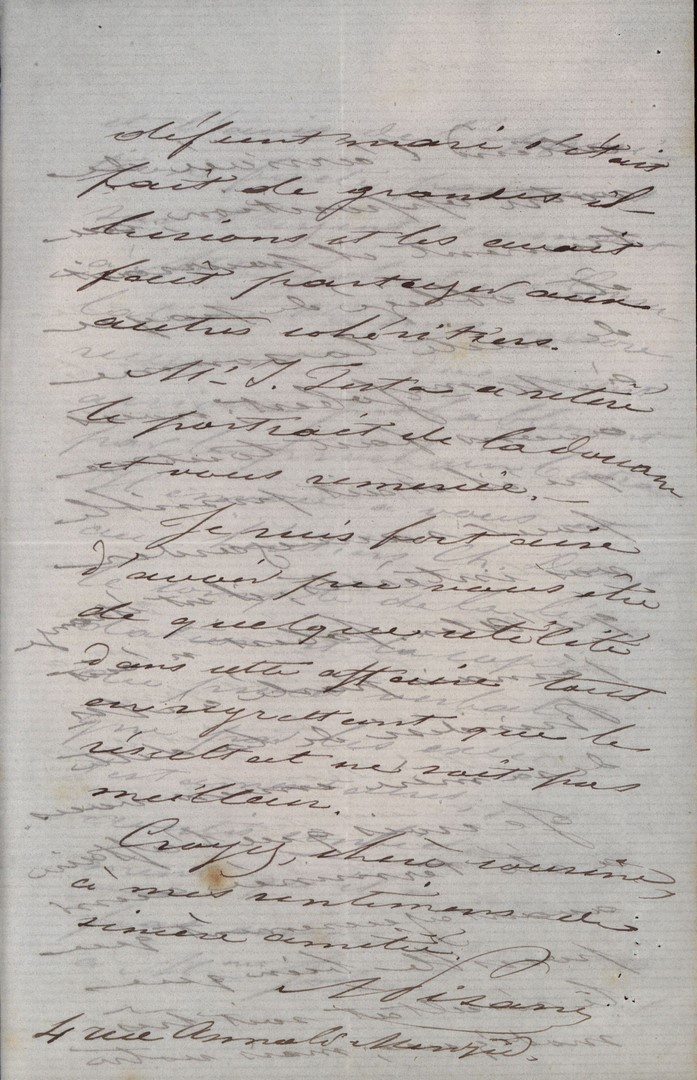 défunt mari s'était
fait de grandes il-
lusions et les avait
fait partager aux
autres cohéritiers.
Mr J. Testa a retiré
le portrait de la douane
et vous remercie. —
Je suis fort aise
d'avoir pu vous être
de quelque utilité
dans cette affaire tout
en regrettant que le
résultat ne soit pas
meilleur.
Croyez, chère cousine,
à mes sentimens de
sincère amitié.
Pisani
4 rue